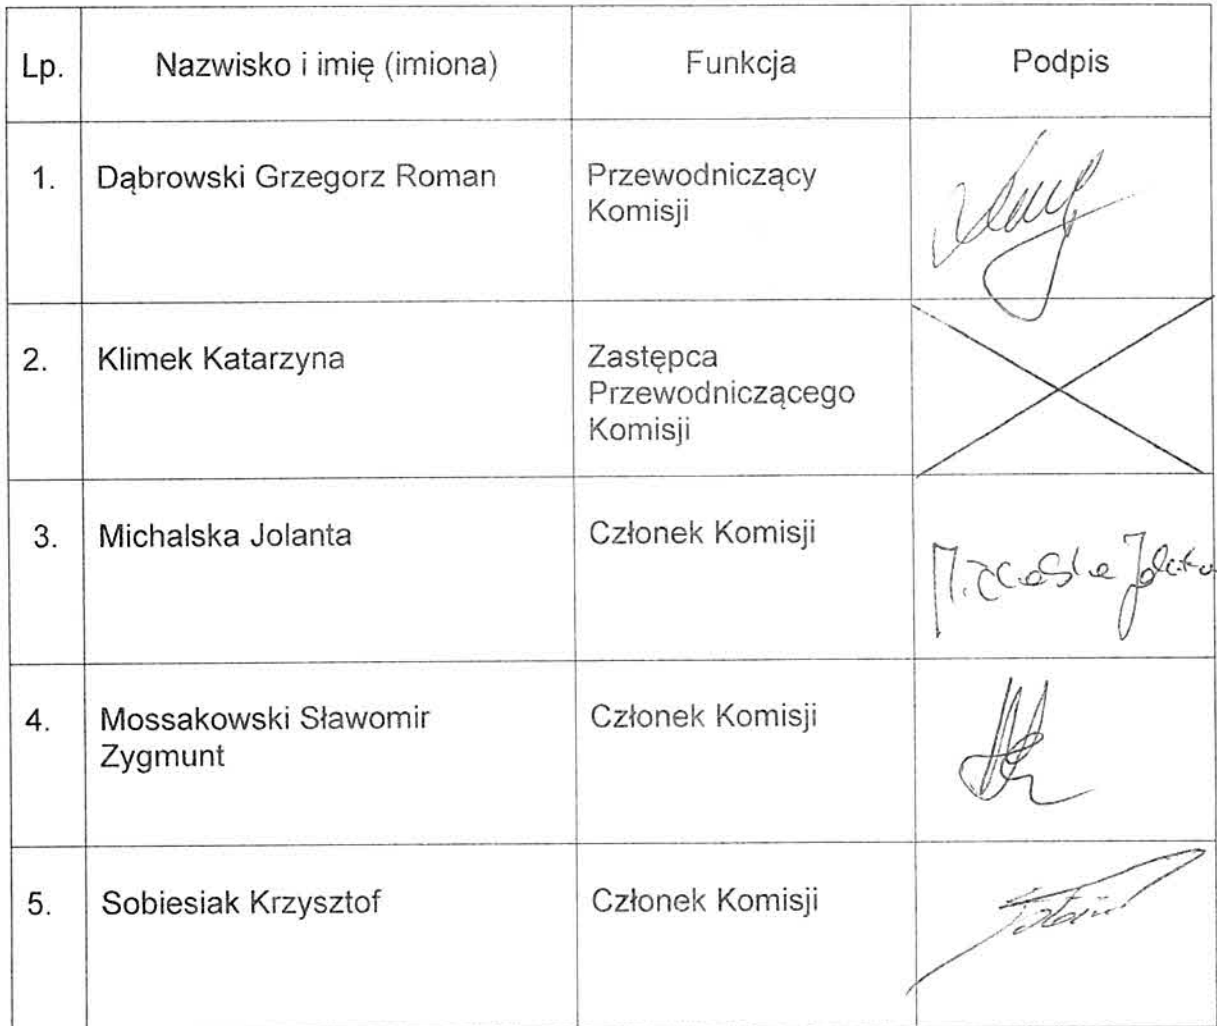 Lp. Nazwisko i imię (imiona) Funkcja Podpis
1. Dąbrowski Grzegorz Roman Przewodniczący
Komisji
2. Klimek Katarzyna Zastępca
Przewodniczącego
Komisji
3. Michalska Jolanta Członek Komisji
4. Mossakowski Sławomir Członek Komisji
Zygmunt
5. Sobiesiak Krzysztof Członek Komisji